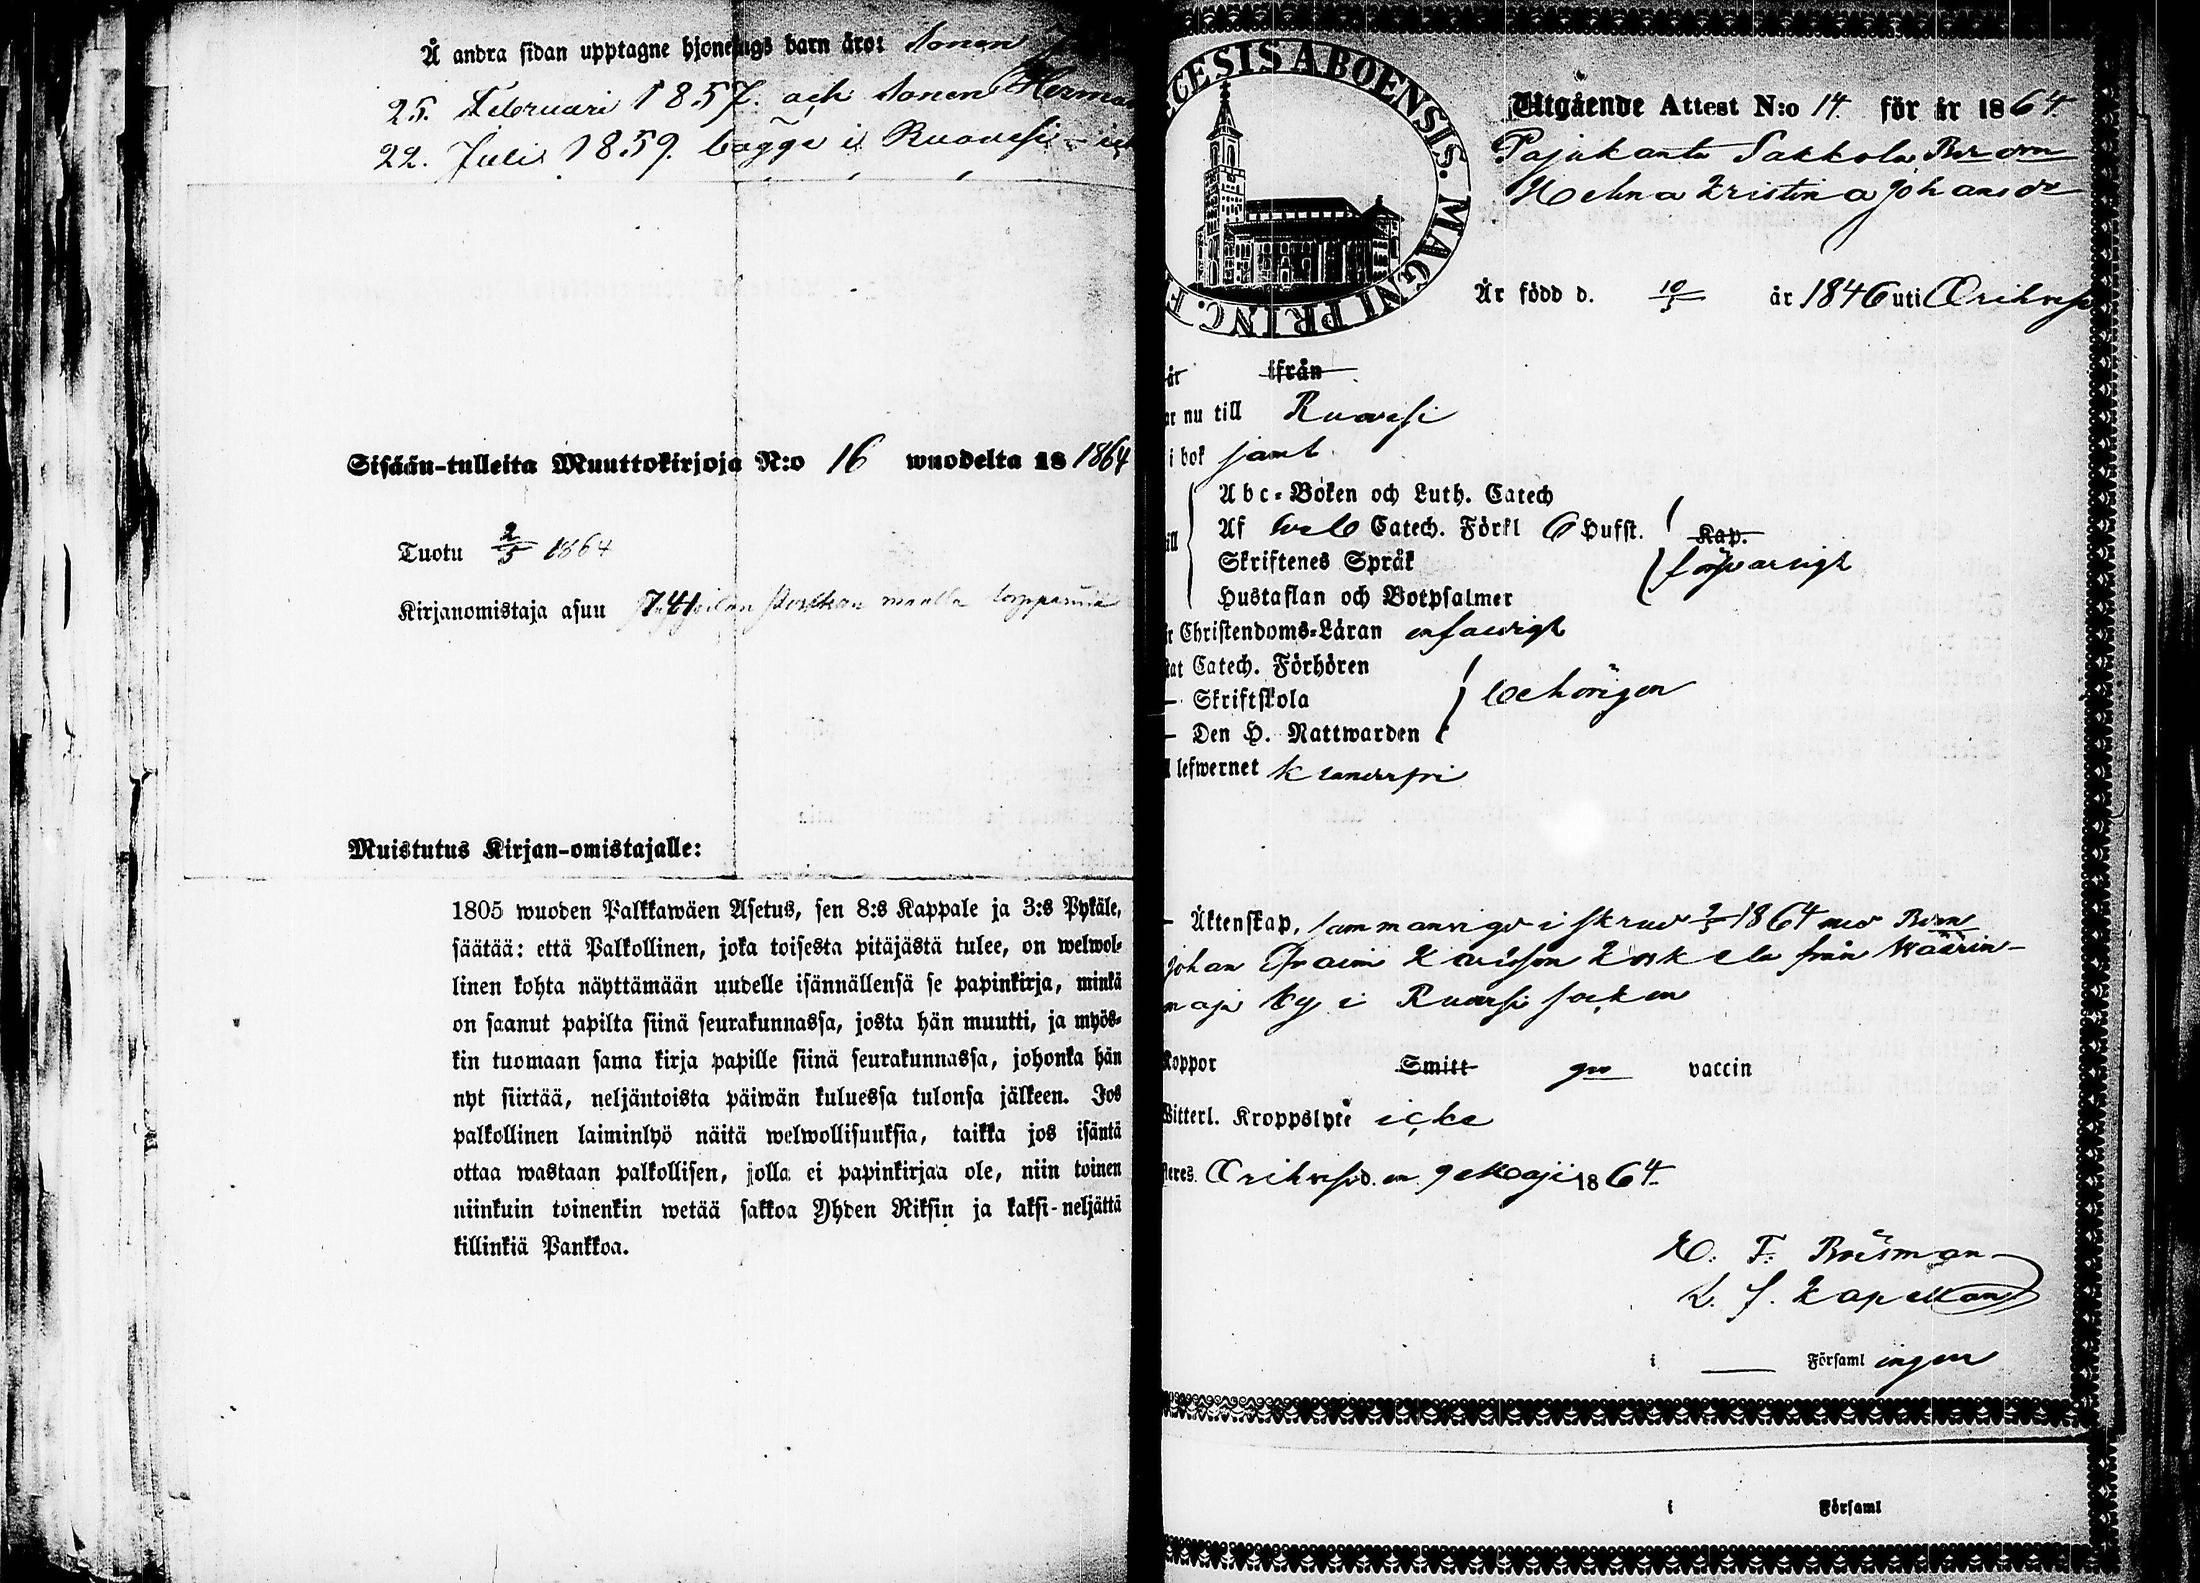 Å andra sidan upptagne hjonelags barn äro: Sonen
25. Februari 1857. och Sonen Herma
22. Juli 1859. bägge i Ruovesi
Sisään-tulleita Muuttokirjoja N:o 16 wuodelta 18 1864
Tuotu 2/5 1864
Kirjanomistaja asuu maalla torppanna
Muistutus Kirjan-omistajalle:
1805 wuoden Palkkawäen Asetus, sen 8:s Kappale ja 3:s Pykäle,
säätää: että Palkollinen, joka toisesta pitäjästä tulee, on welwol-
linen kohta näyttämään uudelle isännällensä se papinkirja, minkä
on saanut papilta siinä seurakunnassa, josta hän muutti, ja myös-
kin tuomaan sama kirja papille siinä seurakunnassa, johonka hän
nyt siirtää, neljäntoista päiwän kuluessa tulonsa jälkeen. Jos
palkollinen laiminlyö näitä welwollisuuksia, taikka jos isäntä
ottaa wastaan palkollisen, jolla ei papinkirjaa ole, niin toinen
niinkuin toinenkin wetää sakkoa Yhden Riksin ja kaksi-neljättä
killinkiä Pankkoa.
CESIS ABOENSIS. MAGNI PRINC. F
Utgående Attest N:o 14. för år 1864.
Pajukanta Sakkola Bdr
Helena Kristina Johansdr
Är född d. 10/5 år 1846 uti Orihvesi
år ifrån
nu till Ruovesi
i bok samt
Abc-Boken och Luth. Catech
Af Catech. Förkl 6 Hufst. Kap.
Skriftenes Språk försvarligt
Hustaflan och Botpsalmer
Christendoms-Läran enfaldigt
Catech. Förhören
– Skriftskola behörigen
– Den H. Nattwarden
lefwernet klanderfri
– Äktenskap, sammanvigd i skrud 2/5 1864 med
Johan Efraim Karlsson Koskela från Väärin-
maja by i Ruovesi socken
koppor Smitt gm vaccin
Witterl. Kroppslyte icke
Orihvesi d. en 9 Maji 1864.
H. F. Brisman
K. f. Kapellan
i Församl ingen
i Församl